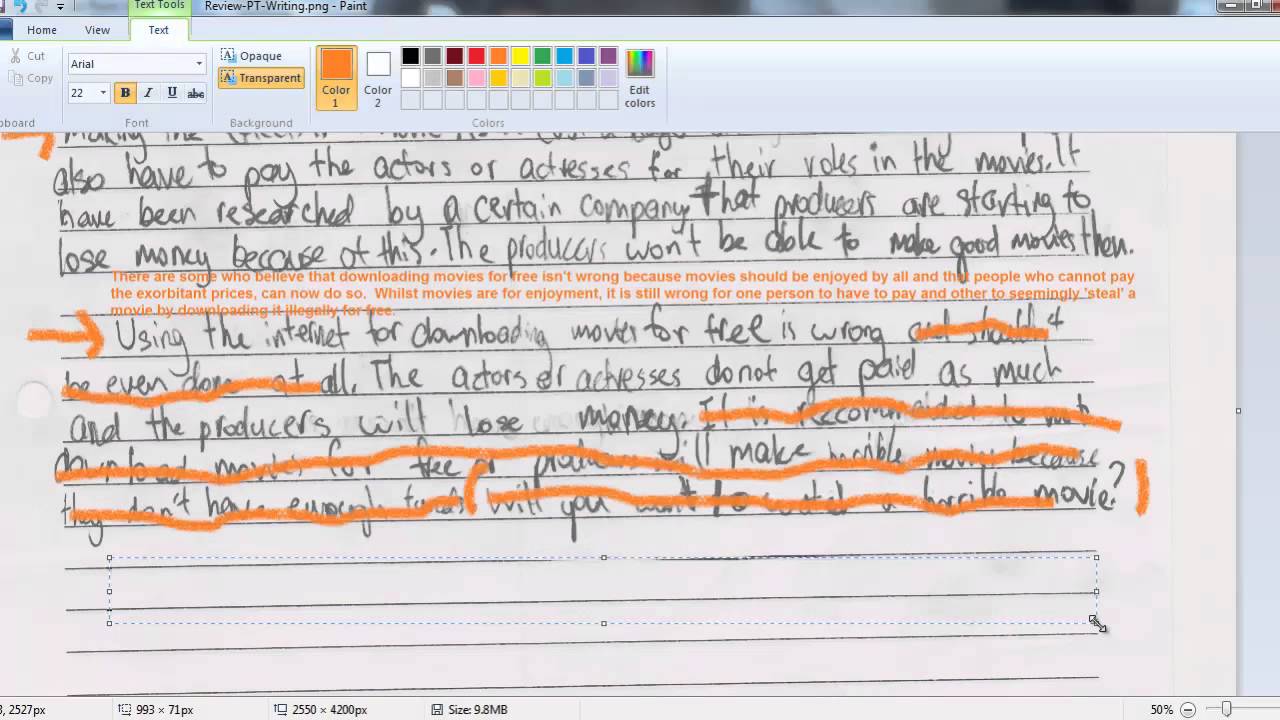 Text Tools
Review-PT-Writing.png - Paint
Home View Text
Cut
Copy
Arial
22 B I U abc
Opaque
Transparent
Color 1
Color 2
Edit colors
pboard Font Background Colors
making the
also have to pay the actors or actresses for their roles in the movies. It
have been researched by a certain company that producers are starting to
lose money because of this. The producers won't be able to make good movies then.
There are some who believe that downloading movies for free isn't wrong because movies should be enjoyed by all and that people who cannot pay
the exorbitant prices, can now do so. Whilst movies are for enjoyment, it is still wrong for one person to have to pay and other to seemingly 'steal' a
movie by downloading it illegally for free.
Using the internet for downloading movies for free is wrong and should
be even done at all. The actors or actresses do not get paid as much
and the producers will lose money. It is recommended to not
download movies for free or producers will make horrible movies because
they don't have enough funds. Will you want to watch a horrible movie?
3, 2527px 993 × 71px 2550 × 4200px Size: 9.8MB 50%